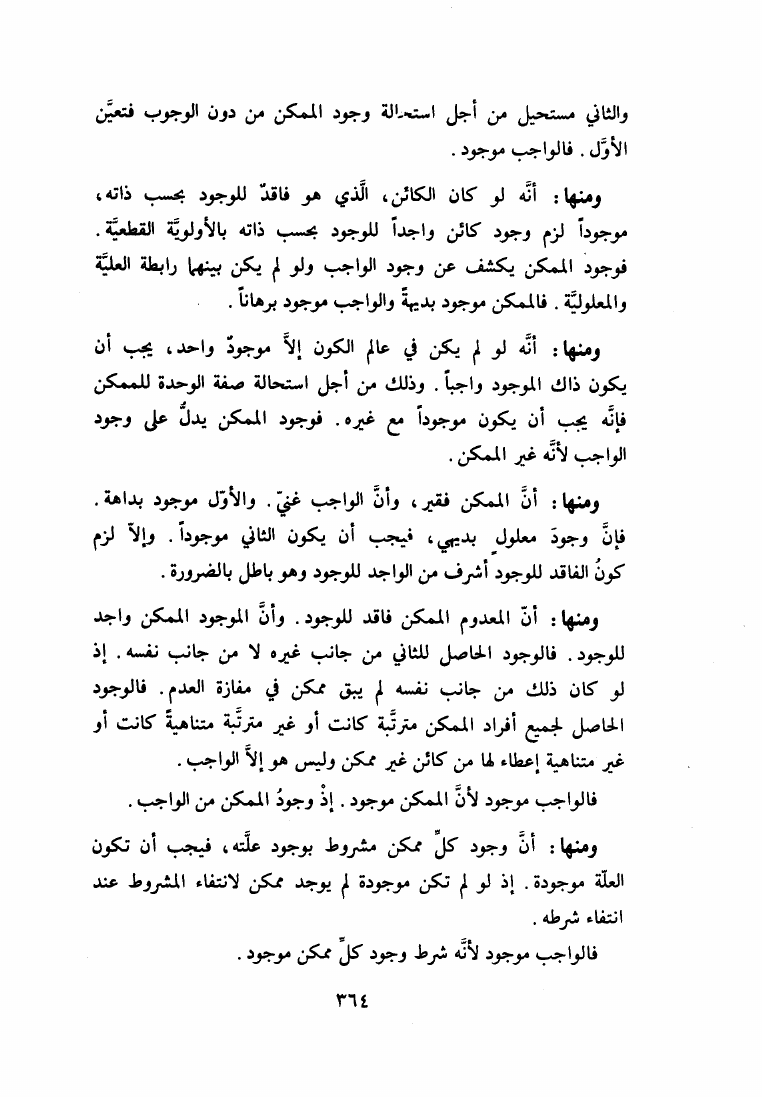 والثاني مستحيل من أجل استحالة وجود الممكن من دون الوجوب فتعيَّن
الأوَّل . فالواجب موجود .
ومنها : أنَّه لو كان الكائن، الَّذي هو فاقدٌ للوجود بحسب ذاته،
موجوداً لزم وجود كائن واجداً للوجود بحسب ذاته بالأولويَّة القطعيَّة .
فوجود الممكن يكشف عن وجود الواجب ولو لم يكن بينهما رابطة العليَّة
والمعلوليَّة . فالممكن موجود بديهةً والواجب موجود برهاناً .
ومنها : أنَّه لو لم يكن في عالم الكون إلاَّ موجودٌ واحد، يجب أن
يكون ذاك الموجود واجباً . وذلك من أجل استحالة صفة الوحدة للممكن
فإنَّه يجب أن يكون موجوداً مع غيره. فوجود الممكن يدلُّ على وجود
الواجب لأنَّه غير الممكن .
ومنها : أنَّ الممكن فقير، وأنَّ الواجب غنيّ. والأوّل موجود بداهة .
فإنَّ وجودَ معلولٍ بديهي، فيجب أن يكون الثاني موجوداً . وإلاّ لزم
كونُ الفاقد للوجود أشرف من الواجد للوجود وهو باطل بالضرورة .
ومنها : أنّ المعدوم الممكن فاقد للوجود. وأنَّ الموجود الممكن واجد
للوجود. فالوجود الحاصل للثاني من جانب غيره لا من جانب نفسه . إذ
لو كان ذلك من جانب نفسه لم يبق ممكن في مفازة العدم. فالوجود
الحاصل لجميع أفراد الممكن مترتَّبة كانت أو غير مترتَّبة متناهيةً كانت أو
غير متناهية إعطاء لها من كائن غير ممكن وليس هو إلاَّ الواجب .
فالواجب موجود لأنَّ الممكن موجود . إذْ وجودُ الممكن من الواجب .
ومنها : أنَّ وجود كلِّ ممكن مشروط بوجود علَّته، فيجب أن تكون
العلّة موجودة . إذ لو لم تكن موجودة لم يوجد ممكن لانتفاء المشروط عند
انتفاء شرطه .
فالواجب موجود لأنَّه شرط وجود كلِّ ممكن موجود .
٣٦٤